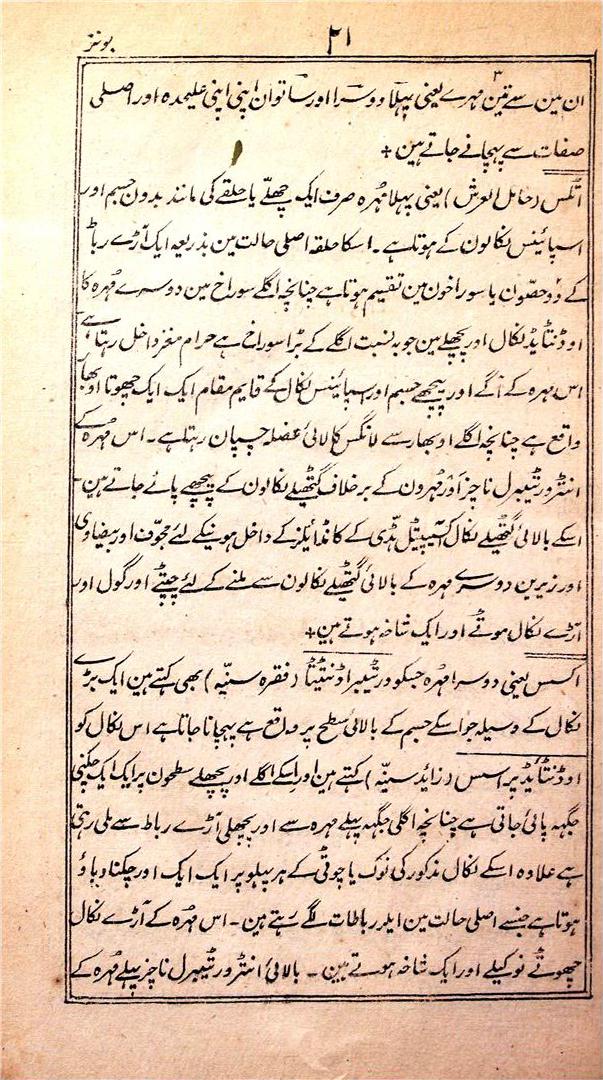 بونز
۲۱
ان مین سے تین مہرے یعنی پہلا دوسرا اور ساتوان اپنی اپنی علیحدہ اور اصلی
صفات سے پہچانے جاتے ہین +
اٹلس (حامل العرش) یعنی پہلا مہرہ صرف ایک چھلّے یا حلقے کی مانند بدون جسم اور
اسپائینس نکالون کے ہوتا ہے ۔ اسکا حلقہ اصلی حالت مین بذریعہ ایک آڑے رباط
کے دو حصّون یا سوراخون مین تقسیم ہوتا ہے چنانچہ اگلے سوراخ مین دوسرے مُہرہ کا
اوڈنٹایڈ نکال اور پچھلے مین جو بہ نسبت اگلے کے بڑا سوراخ ہے حرام مغز داخل رہتا ہے
اس مہرہ کے آگے اور پیچھے جسم اور اسپائینس نکال کے قایم مقام ایک ایک چھوٹا اوبھار
واقع ہے چنانچہ اگلے اوبھار سے لانگس کالائی عضلہ چسپان رہتا ہے ۔ اس مُہرہ کے
انٹرورٹیبرل ناچز اَور مُہرون کے برخلاف گٹھیلے نکالون کے پیچھے پائے جاتے ہین ۔
اسکے بالائی گٹھیلے نکال آکسیپیٹل ہڈّی کے کانڈایلز کے داخل ہونیکے لئے مجوّف اور بیضاوی
اور زیرین دوسرے مہرہ کے بالائی گٹھیلے نکالون سے ملنے کے لئے چپٹے اور گول اور
آڑے نکال ہوتے اور ایک شاخہ ہوتے ہین +
اکسس یعنی دوسرا مُہرہ جسکو ورٹیبرا اوڈنٹیٹا (فقرہ سنیّہ) بھی کہتے ہین ایک بڑے
نکال کے وسیلہ جو اسکے جسم کے بالائی سطح پر واقع ہے پہچانا جاتا ہے اس نکال کو
اوڈنٹائیڈ پراسس (زائد سنیّہ) کہتے ہین اور اسکے اگلے اور پچھلے سطحون پر ایک ایک چکنی
جگہہ پائی جاتی ہے چنانچہ اگلی جگہہ پہلے مہرہ سے اور پچھلی آڑے رباط سے ملی رہتی
ہے علاوہ اسکے نکال مذکور کی نوک یا چوٹی کے ہر پہلو پر ایک ایک اور چکنا دباؤ
ہوتا ہے جنسے اصلی حالت مین ایلر رباطات لگے رہتے ہین ۔ اس مُہرہ کے آڑے نکال
چھوٹے نوکیلے اور ایک شاخہ ہوتے ہین ۔ بالائی انٹرورٹیبرل ناچز پہلے مُہرہ کے